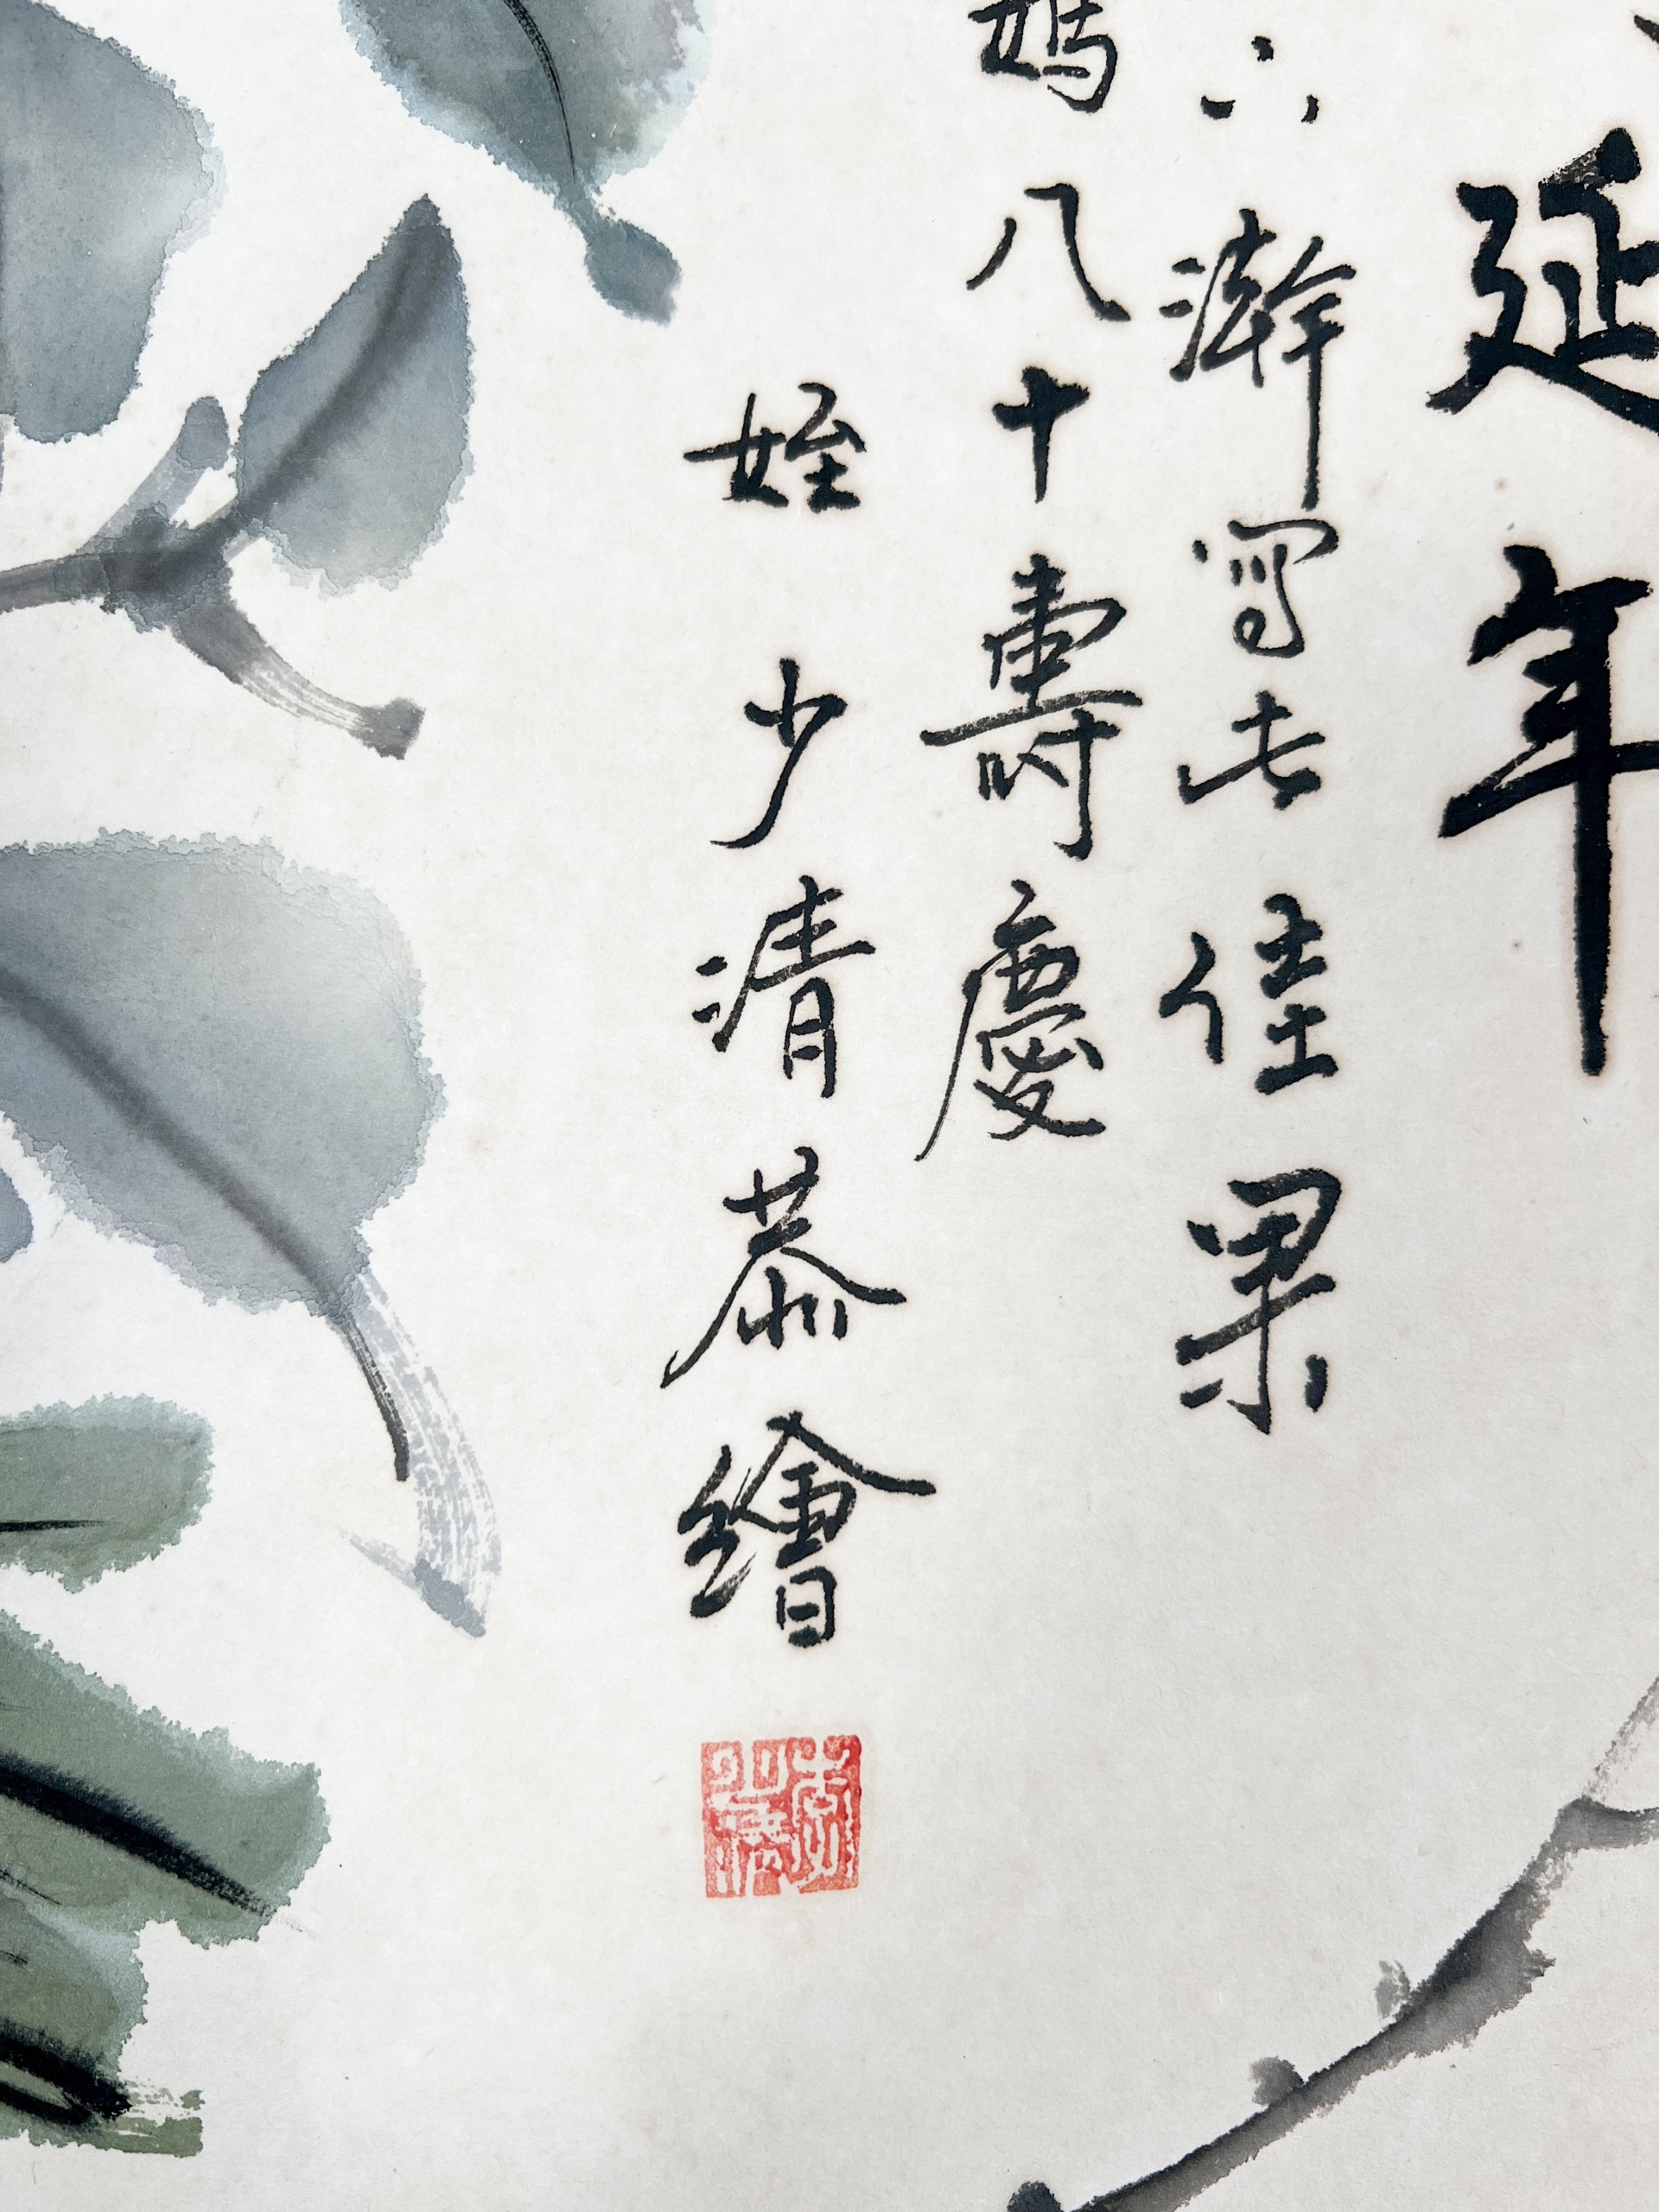 延年
澣寫此佳果
媽八十壽慶
姪少清恭繪